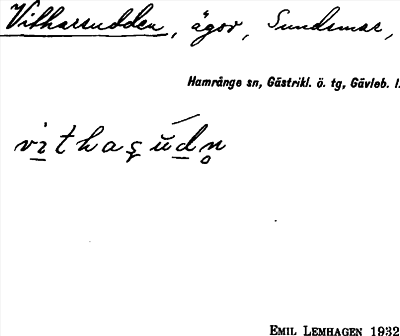 Vitharsudden, ägor, Sundsmar,
Hamrånge sn, Gästrikl. ö. tg, Gävleb. l.
vi̲thaʂŭ́d̲n̥
EMIL LEMHAGEN 1932